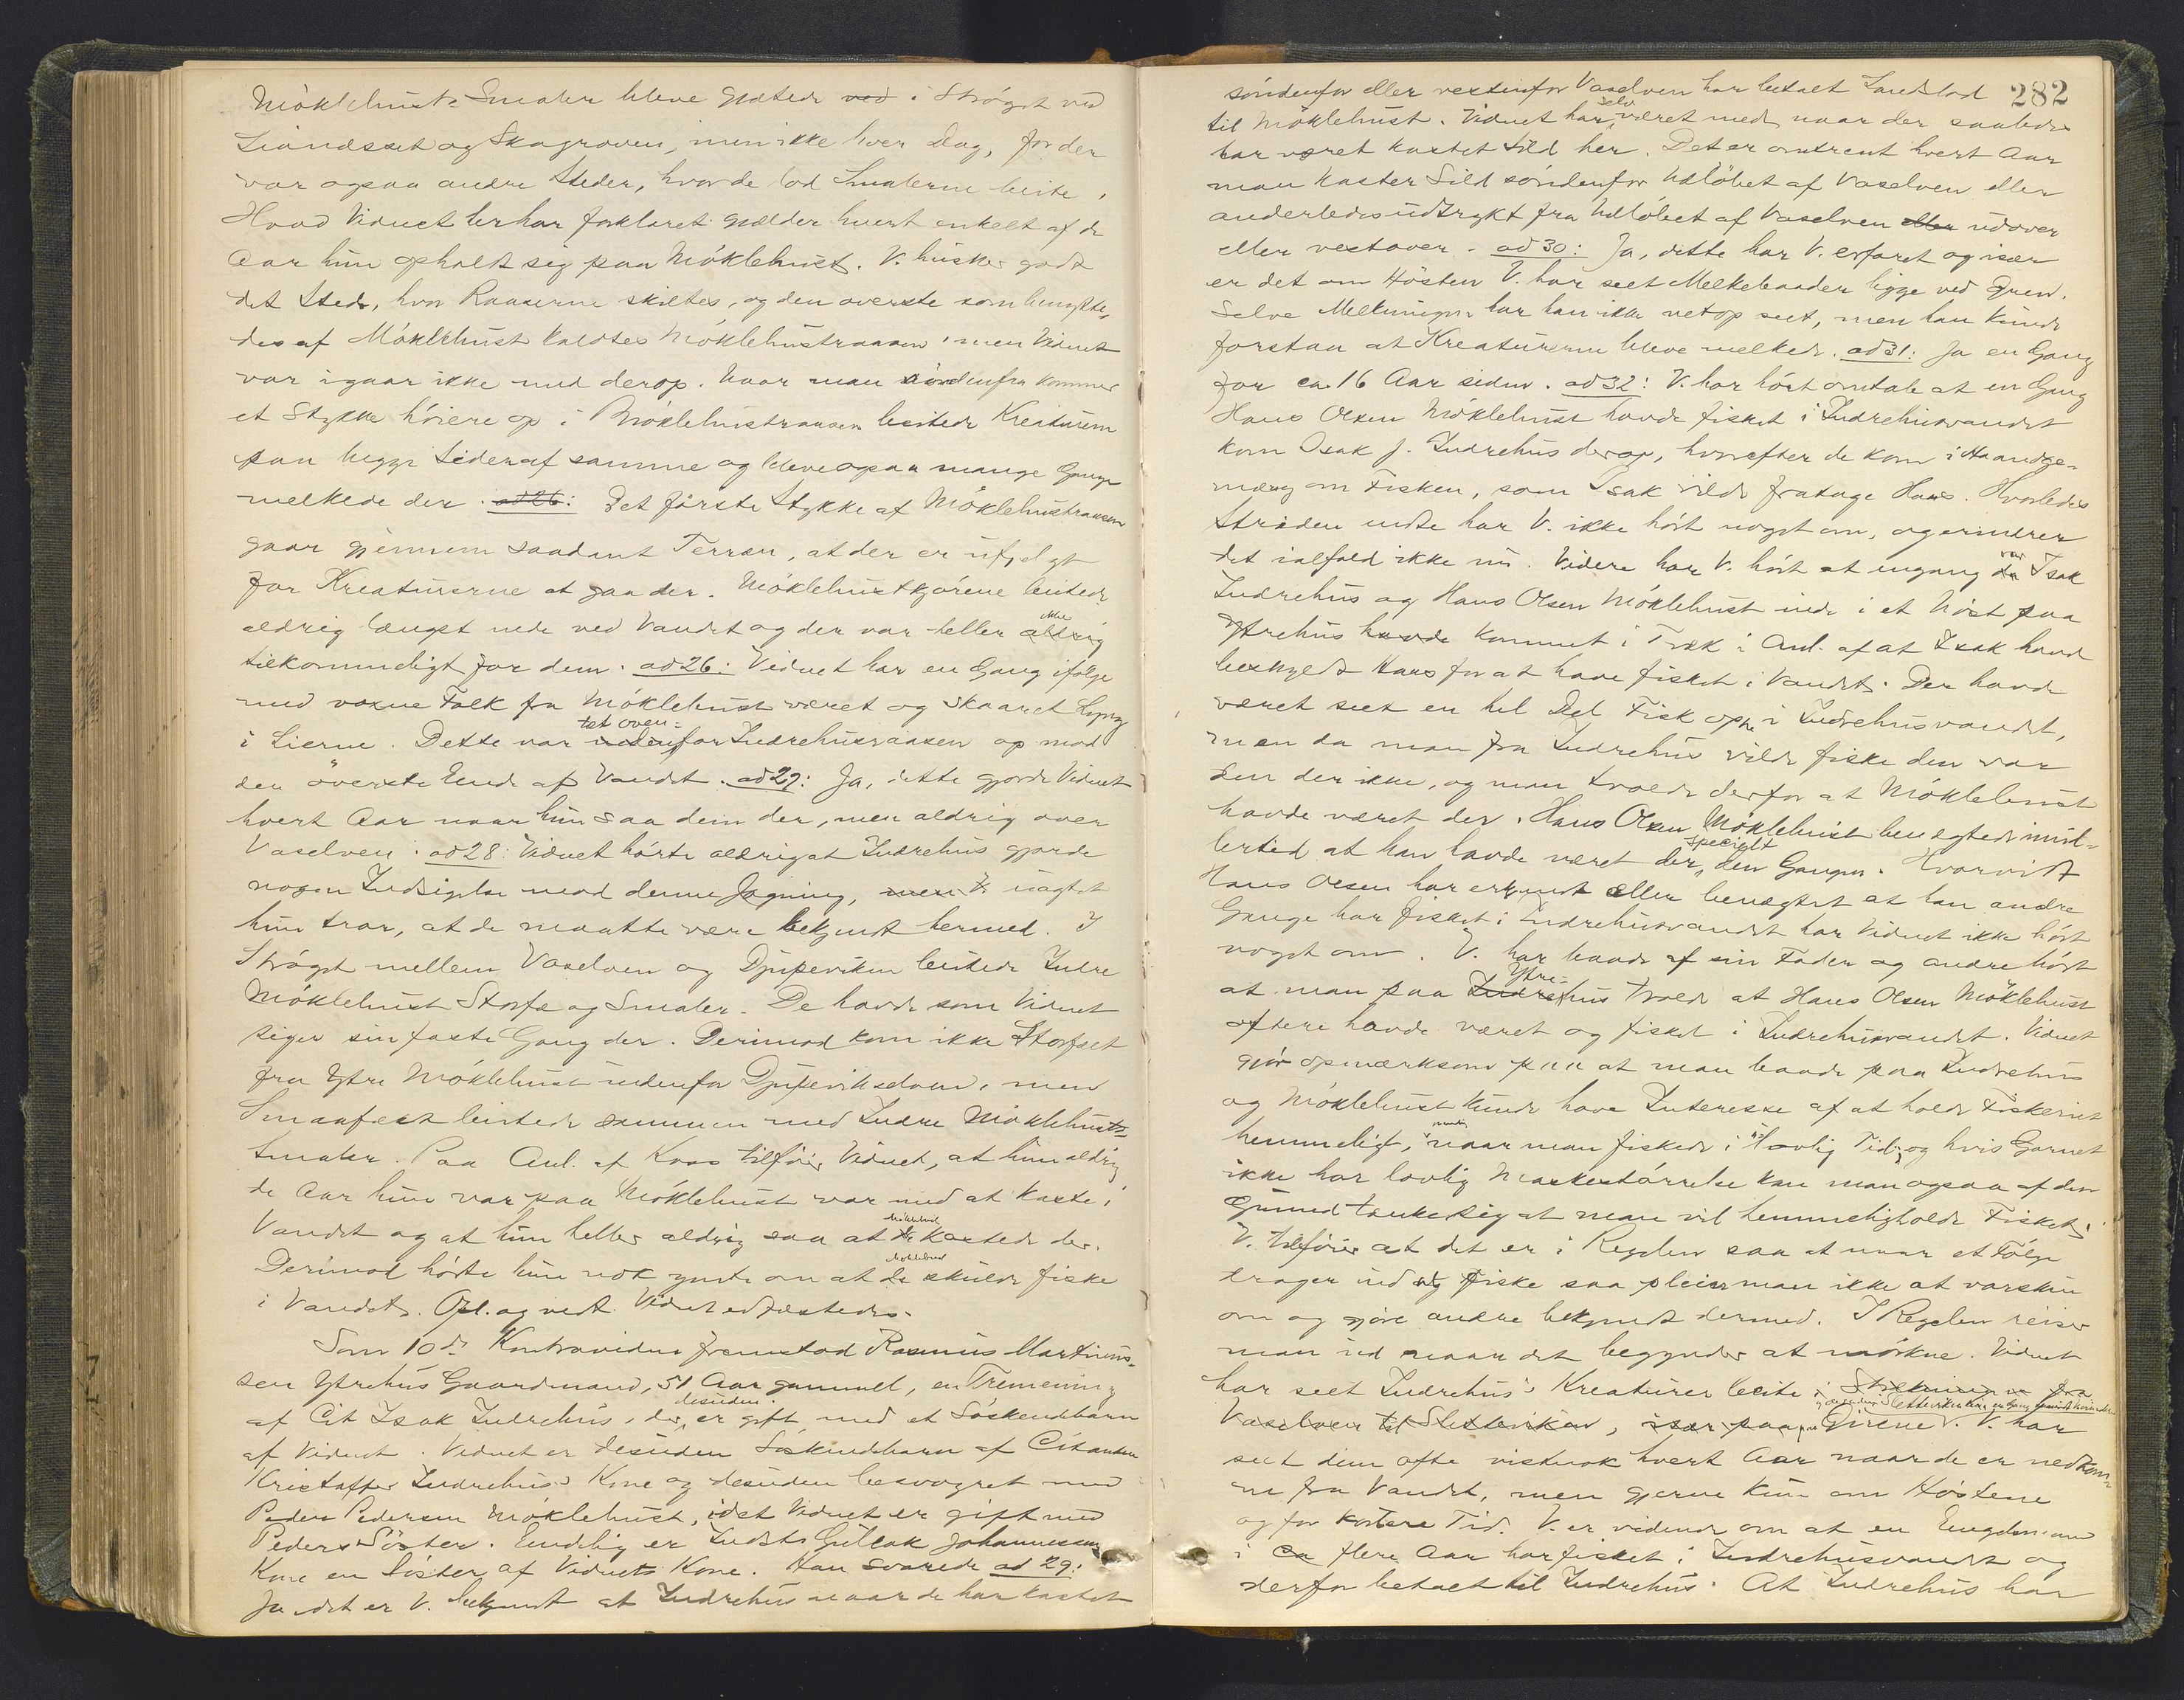 Möklebust-Smaler bleve gjætede ved i Strøget ved
Liandsæt og Skagraven, men ikke hver Dag, for der
var ogsaa andre Steder, hvor de lod Smalerne beite.
Hvad Vidnet her har forklaret gjælder hvert enkelt af de
Aar hun opholdt sig paa Möklebust. V. husker godt
det Sted, hvor Raaserne skiltes, og den øverste som benytte-
des af Möklebust kaldtes Möklebustraasen, men Vidnet
var igaar ikke med derop. Naar man söndenfra kommer
et Stykke höiere op i Möklebustraasen beitede Kreaturerne
paa begge Sider af samme og bleve ogsaa mange Gange
melkede der. ad 26: Det förste Stykke af Möklebustraasen
gaar gjennem saadant Terræn, at der er ufølgt
for Kreaturerne at gaa der. Möklebustkjörene beitede
aldrig længst nede ved Vandet og der var heller aldrig ikke
tilkommeligt for dem. ad 26: Vidnet har en Gang ifølge
med voxne Folk fra Möklebust været og skaaret Lyng
i Lierne. Dette var nedenfor tæt oven- Indrehusraasen op mod
den överste Ende af Vandet. ad 27: Ja, dette gjorde Vidnet
hvert Aar naar hun saa dem der, men aldrig over
Vaselven. ad 28: Vidnet hörte aldrig at Indrehus gjorde
nogen Indsigelse mod denne Jagning, men V. uagtet
hun tror, at de maatte være bekjendt hermed. I
Strøget mellem Vaselven og Djupeviken beitede Indre
Möklebust Storfæ og Smaler. De havde som Vidnet
siger sin faste Gang der. Derimod kom ikke Storfæet
fra Ytre Möklebust indenfor Djupevikselven, men
Smaafæet beitede sammen med Indre Möklebusts
Smaler. Paa Anl. af Koos tilföier Vidnet, at hun aldrig
de Aar hun var paa Möklebust var med at kaste i
Vandet og at hun heller aldrig saa at de Möklebust kastede der.
Derimod hörte hun nok ymte om at de Möklebust skulde fiske
i Vandet. Opl. og vedt. Vidnet edfæstedes.
Som 10de Kontravidne fremstod Rasmus Martinus-
sen Ytrehus Gaardmand, 51 Aar gammel, en Tremening
af Cit Isak Indrehus, der desuden er gift med et Söskendebarn
af Vidnet. Vidnet er desuden Söskendebarn af Citanten
Kristoffer Indrehus's Kone og desuden besvogret med
Peder Pedersen Möklebust, idet Vidnet er gift med
Peders Söster. Endelig er Indsts Gullak Johannessens
Kone en Söster af Vidnets Kone. Han svarede ad 29:
Ja det er V. bekjendt at Indrehus naar de har kastet
282
söndenfor eller vestenfor Vaselven har betalt Landslod
til Möklebust. Vidnet har selv været med naar der saaledes
har været kastet Sild her. Det er omtrent hvert Aar
man kaster Sild söndenfor Udlöbet af Vaselven eller
anderledes udtrykt fra Udlöbet af Vaselven eller udover
eller vestover. ad 30: Ja, dette har V. erfaret og især
er det om Hösten V. har seet Melkebaaden ligge ved Gren.
Selve Melkningen har han ikke netop seet, men han kunde
forstaa at Kreaturerne bleve melkede. ad 31: Ja en Gang
for ca. 16 Aar siden. ad 32: V. har hört omtale at en Gang
Hans Olsen Möklebust havde fisket i Indrehusvandet
kom Isak J. Indrehus derop, hvorefter de kom i Haandge-
mæng om Fisken, som Isak vilde fratage Hans. Hvorledes
Striden endte har V. ikke hört noget om, og erindrer
det ialfald ikke nu. Videre har V. hört at engang da var Isak
Indrehus og Hans Olsen Möklebust inde i et Nöst paa
Ytrehus havde kommet i Træk i Anl. af at Isak havde
beskyldt Hans for at have fisket i Vandet. Der havde
været seet en hel Del Fisk oppe i Indrehusvandet,
men da man fra Indrehus vilde fiske den var
den der ikke, og man troede derfor at Möklebust
havde været der. Hans Olsen Möklebust benægtede imid-
lertid at han havde været der specielt den Gangen. Hvorvidt
Hans Olsen har erkjendt eller benægtet at han andre
Gange har fisket i Indrehusvandet har Vidnet ikke hört
noget om. V. har baade af sin Fader og andre hört
at man paa Indrehus Ytre- troede at Hans Olsen Möklebust
oftere havde været og fisket i Indrehusvandet. Vidnet
gjör opmærksom paa at man baade paa Indrehus
og Möklebust kunde have Interesse af at holde Fiskeriet
hemmeligt, naar man fiskede i ulovlig Tid, og hvis Garnet
ikke har lovlig Maskestörrelse kan man ogsaa af den
Grund tænke sig at man vil hemmeligholde Fisket.
V. tilföier at det er i Regelen saa at naar et Fölge
drager ud og fiske saa pleier man ikke at varsku
om og gjöre andre bekjendt dermed. I Regelen reiser
man ud naar det begynder at mörkne. Vidnet
har seet Indrehus's Kreaturer beite i Strekningen fra
Vaselven til Slettevikav, især paa Girene. V. har
seet dem ofte vistnok hvert Aar naar de er nedkom-
ne fra Vandet, men gjerne kun om Höstene
og for kortere Tid. V. er vidende om at en Engelsmand
i ca flere Aar har fisket i Indrehusvandet og
derfor betalt til Indrehus. At Indrehus har